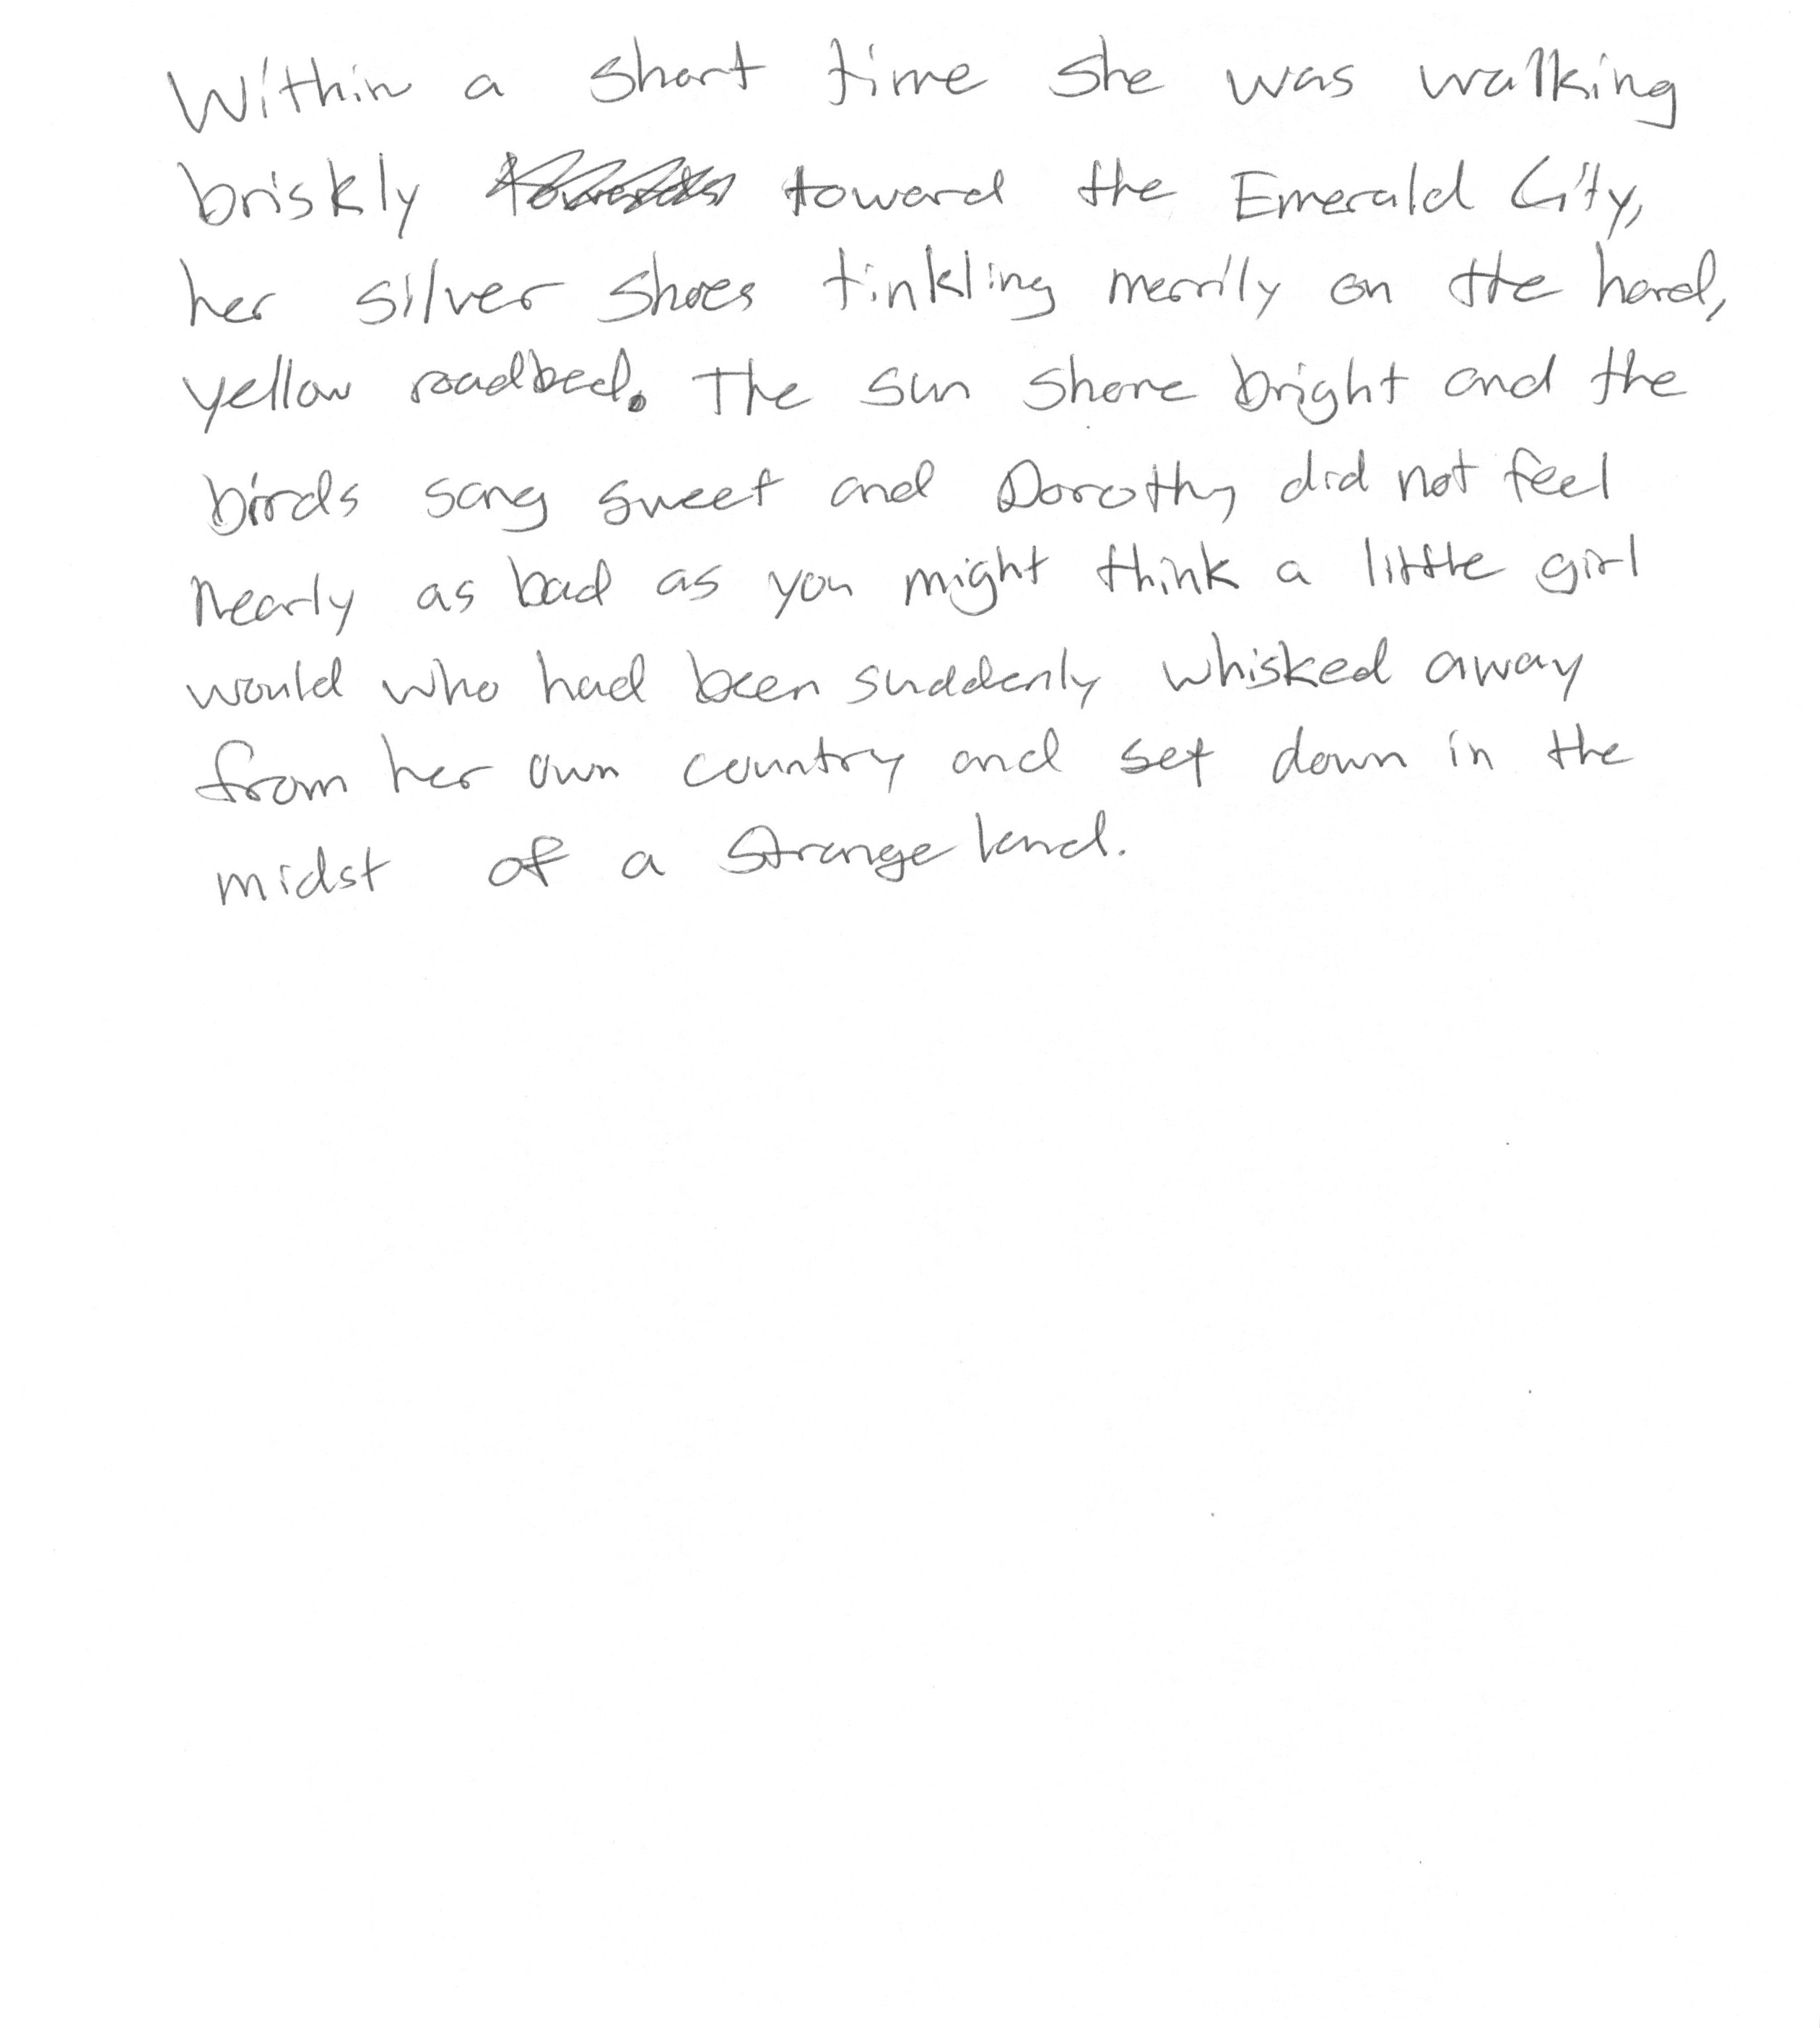 Within a short time she was walking
briskly toward the Emerald City,
her silver shoes tinkling merrily on the hard,
yellow roadbed. The sun shone bright and the
birds sang sweet and Dorothy did not feel
nearly as bad as you might think a little girl
would who had been suddenly whisked away
from her own country and set down in the
midst of a strange land.